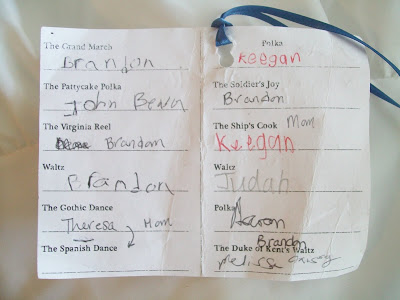 The Grand March
Brandon
The Pattycake Polka
John
The Virginia Reel
Brandon
Waltz
Brandon
The Gothic Dance
Theresa Mom
The Spanish Dance
Polka
Keegan
The Soldier's Joy
Brandon
The Ship's Cook Mom
Keegan
Waltz
Judah
Polka
Aaron
Brandon
The Duke of Kent's Waltz
Melissa